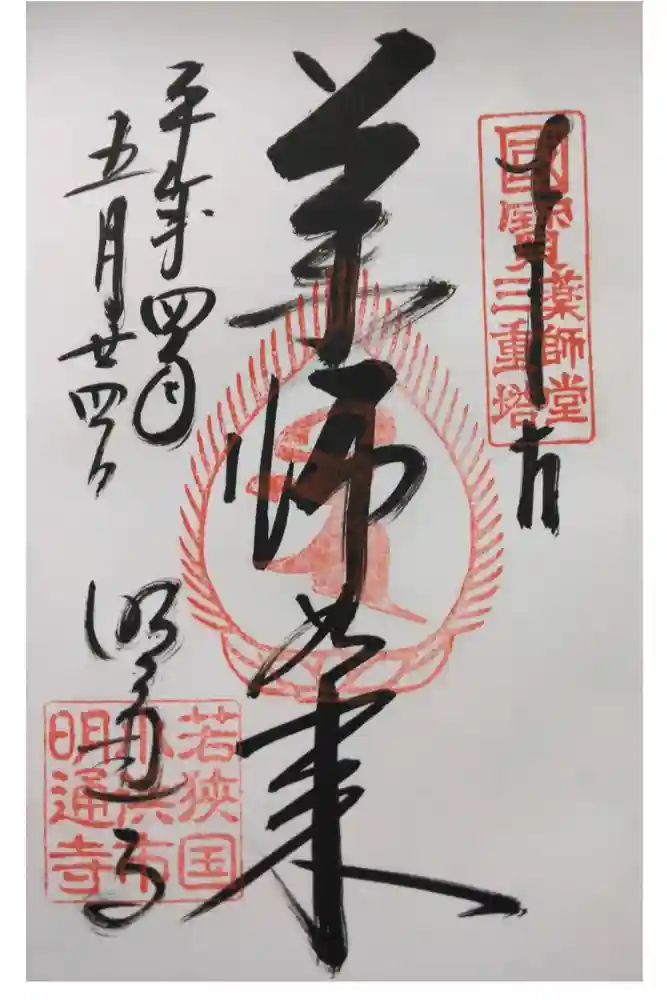 奉拝
國寶
薬師堂
三重塔
薬師如来
平成廿四年
五月廿四日
明通寺
若狭国
小浜市
明通寺